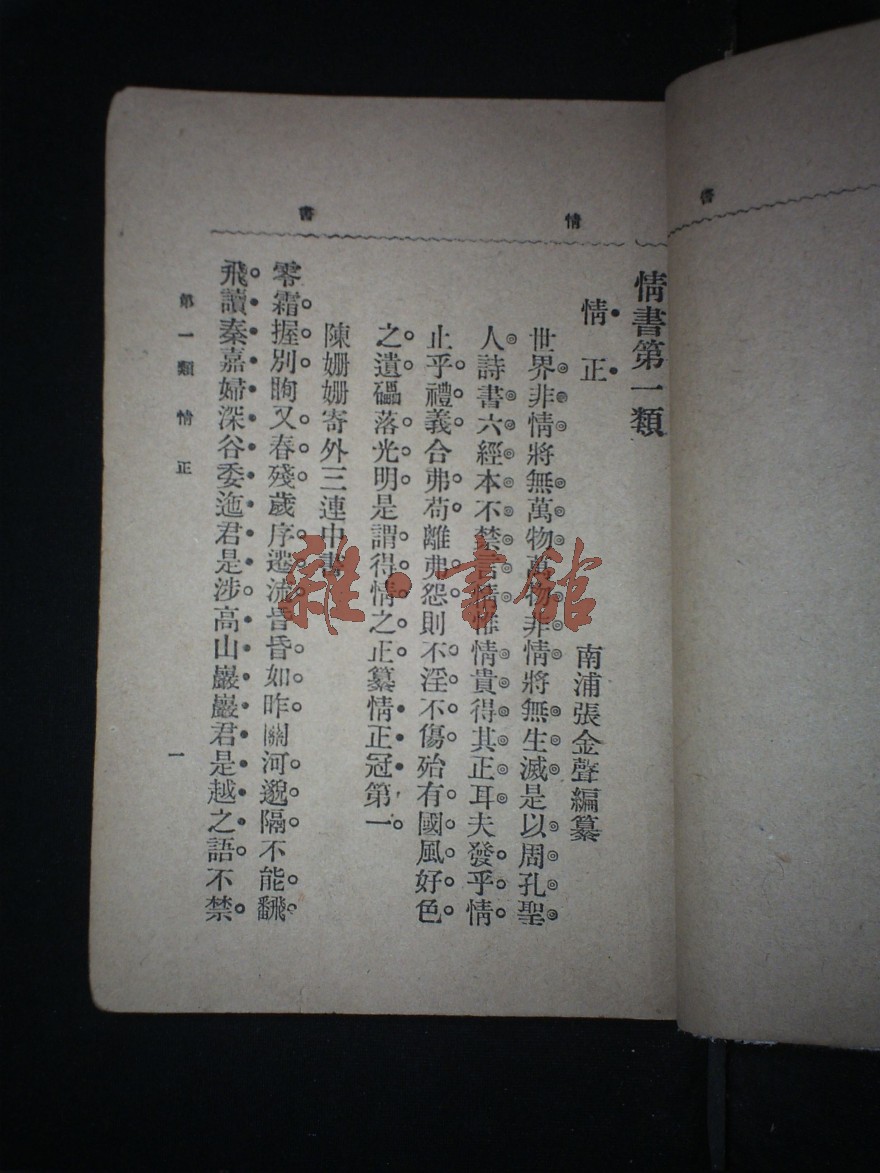 書
情書
情書第一類
情正
南浦張金聲編纂
世界非情將無萬物萬物非情將無生滅是以周孔聖
人詩書六經本不禁言情惟情貴得其正耳夫發乎情
止乎禮義合弗苟離弗怨則不淫不傷殆有國風好色
之遺礧落光明是謂得情之正纂情正冠第一
陳姍姍寄外三連中書
零霜握別眴又春殘歲序遷流昔昏如昨關河邈隔不能翻
飛讀秦嘉婦深谷委迤君是涉高山巖巖君是越之語不禁
第一類情正
一
雜·書館